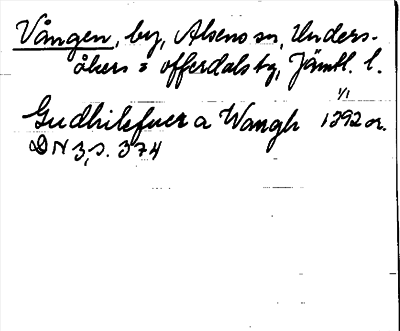 Vången, by, Alsens sn, Unders-
åkers o Offerdals tg, Jämtl. l.
Gudhilsfuer a Wangh 1/1 1392 or.
DN 3, s. 374